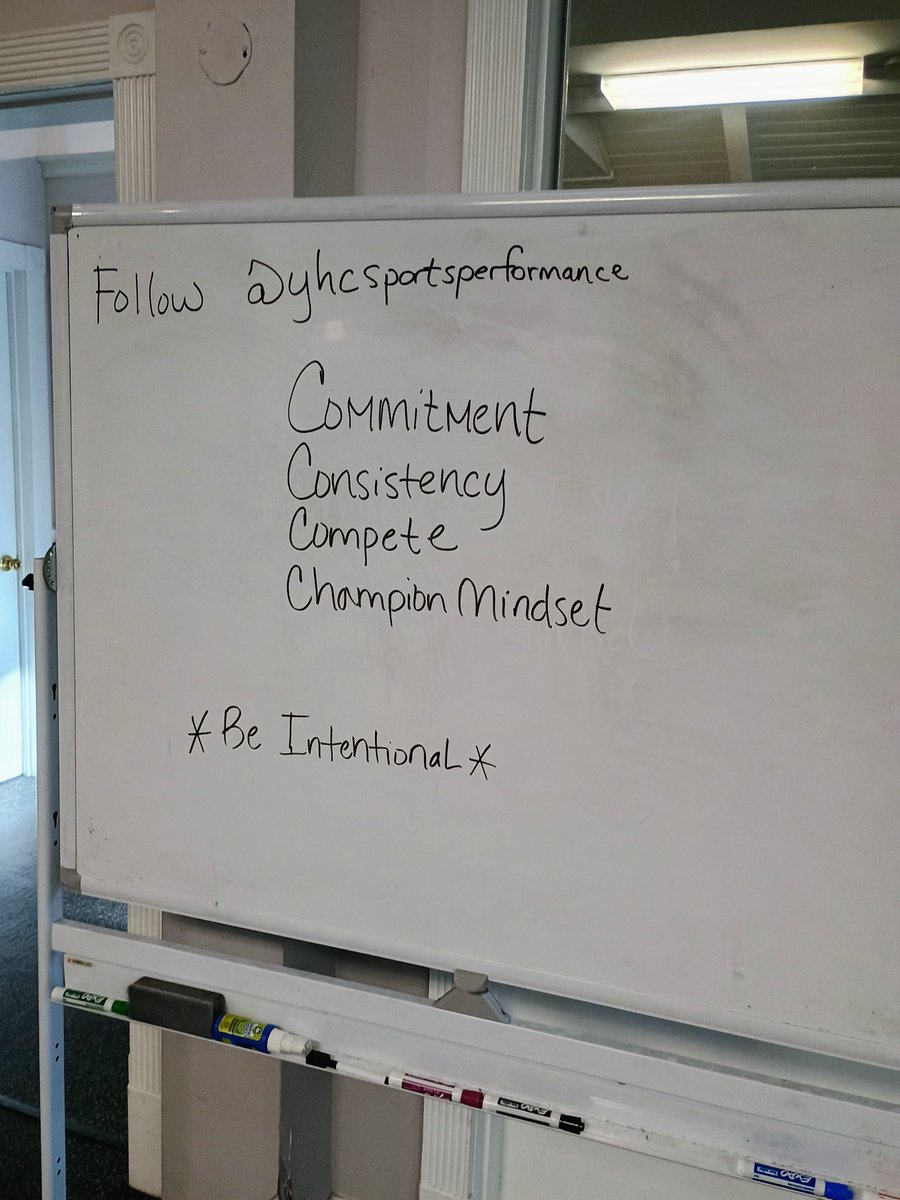 Follow @yhcsportsperformance
Commitment
Consistency
Compete
Champion Mindset
*Be Intentional*
EXPO
EXPO
EXPO